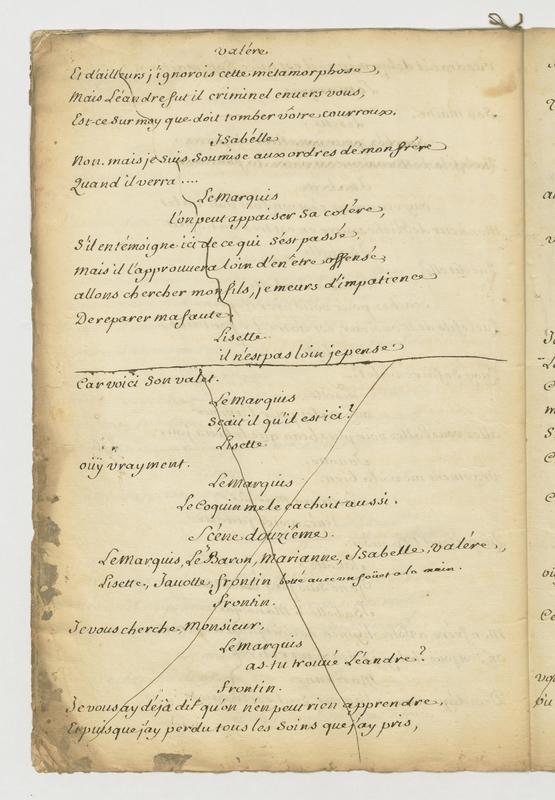 Valére
Et d'ailleurs j'ignorois cette métamorphose,
Mais Léandre fut il criminel envers vous,
Est-ce sur moy que doit tomber vôtre courroux.
Isabelle
Non. mais je suis soumise aux ordres de mon frére
Quand il verra ....
Le Marquis
l'on peut appaiser sa colére,
S'il en témoigne ici de ce qui s'est passé.
Mais il l'approuvera loin d'en être offensé,
allons chercher mon fils, je meurs d'impatience
De reparer ma faute.
Lisette
il n'est pas loin je pense.
Car voici son valet.
Le Marquis
Sçait il qu'il est ici?
Lisette
oüy vrayment.
Le Marquis
Le Coquin me le cachoit aussi.
Scéne douziéme.
Le Marquis, Le Baron, Marianne, Isabelle, Valére,
Lisette, Javotte, frontin botté avec un foüet a la main.
frontin.
Je vous cherche, Monsieur,
Le Marquis
as-tu trouvé Léandre?
frontin.
Je vous ay déjà dit qu'on n'en peut rien apprendre,
Et puisque j'ay perdu tous les soins que j'ay pris,